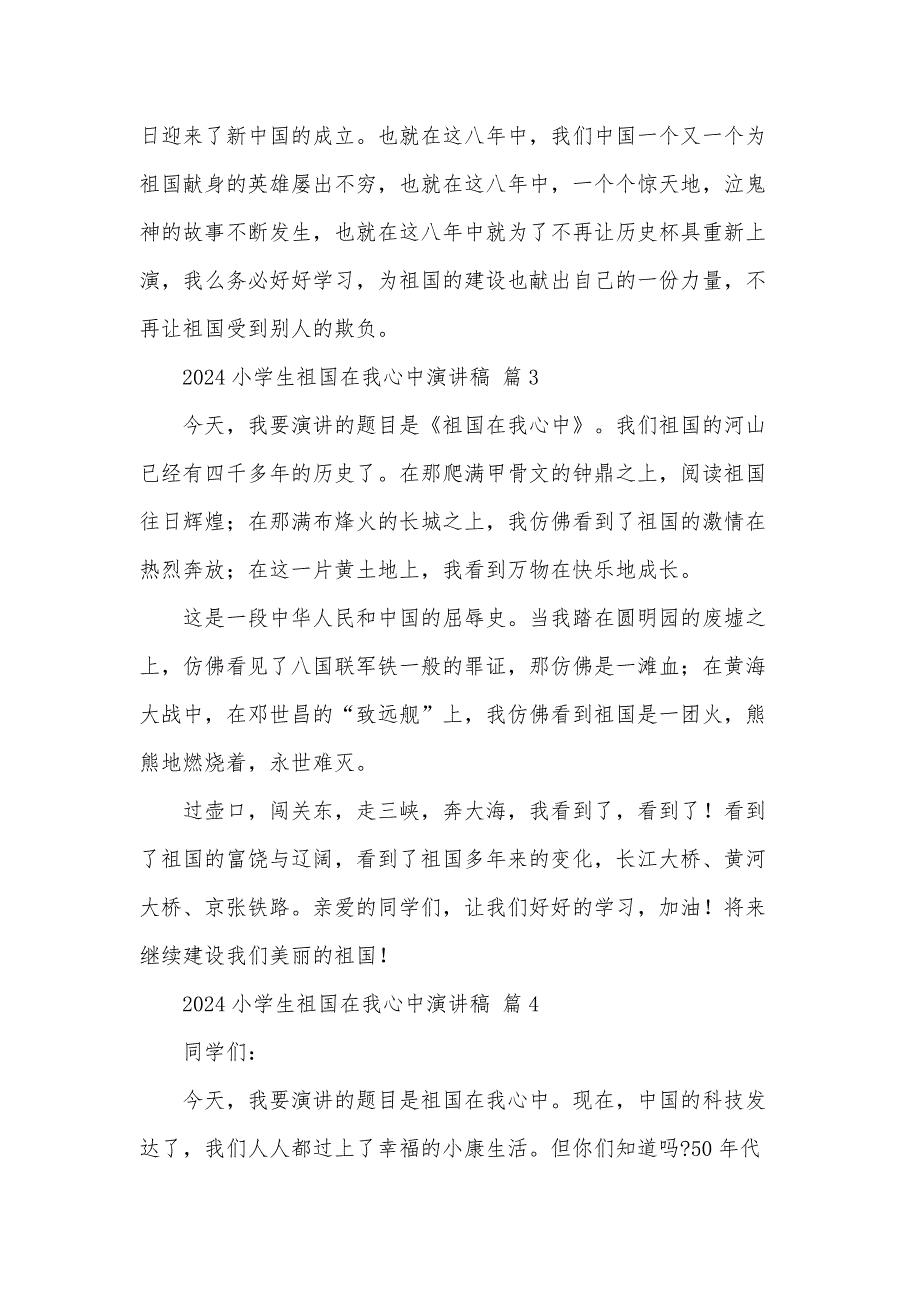 日迎来了新中国的成立。也就在这八年中，我们中国一个又一个为
祖国献身的英雄屡出不穷，也就在这八年中，一个个惊天地，泣鬼
神的故事不断发生，也就在这八年中就为了不再让历史杯具重新上
演，我么务必好好学习，为祖国的建设也献出自己的一份力量，不
再让祖国受到别人的欺负。
2024 小学生祖国在我心中演讲稿 篇 3
今天，我要演讲的题目是《祖国在我心中》。我们祖国的河山
已经有四千多年的历史了。在那爬满甲骨文的钟鼎之上，阅读祖国
往日辉煌；在那满布烽火的长城之上，我仿佛看到了祖国的激情在
热烈奔放；在这一片黄土地上，我看到万物在快乐地成长。
这是一段中华人民和中国的屈辱史。当我踏在圆明园的废墟之
上，仿佛看见了八国联军铁一般的罪证，那仿佛是一滩血；在黄海
大战中，在邓世昌的“致远舰”上，我仿佛看到祖国是一团火，熊
熊地燃烧着，永世难灭。
过壶口，闯关东，走三峡，奔大海，我看到了，看到了！看到
了祖国的富饶与辽阔，看到了祖国多年来的变化，长江大桥、黄河
大桥、京张铁路。亲爱的同学们，让我们好好的学习，加油！将来
继续建设我们美丽的祖国！
2024 小学生祖国在我心中演讲稿 篇 4
同学们：
今天，我要演讲的题目是祖国在我心中。现在，中国的科技发
达了，我们人人都过上了幸福的小康生活。但你们知道吗?50 年代